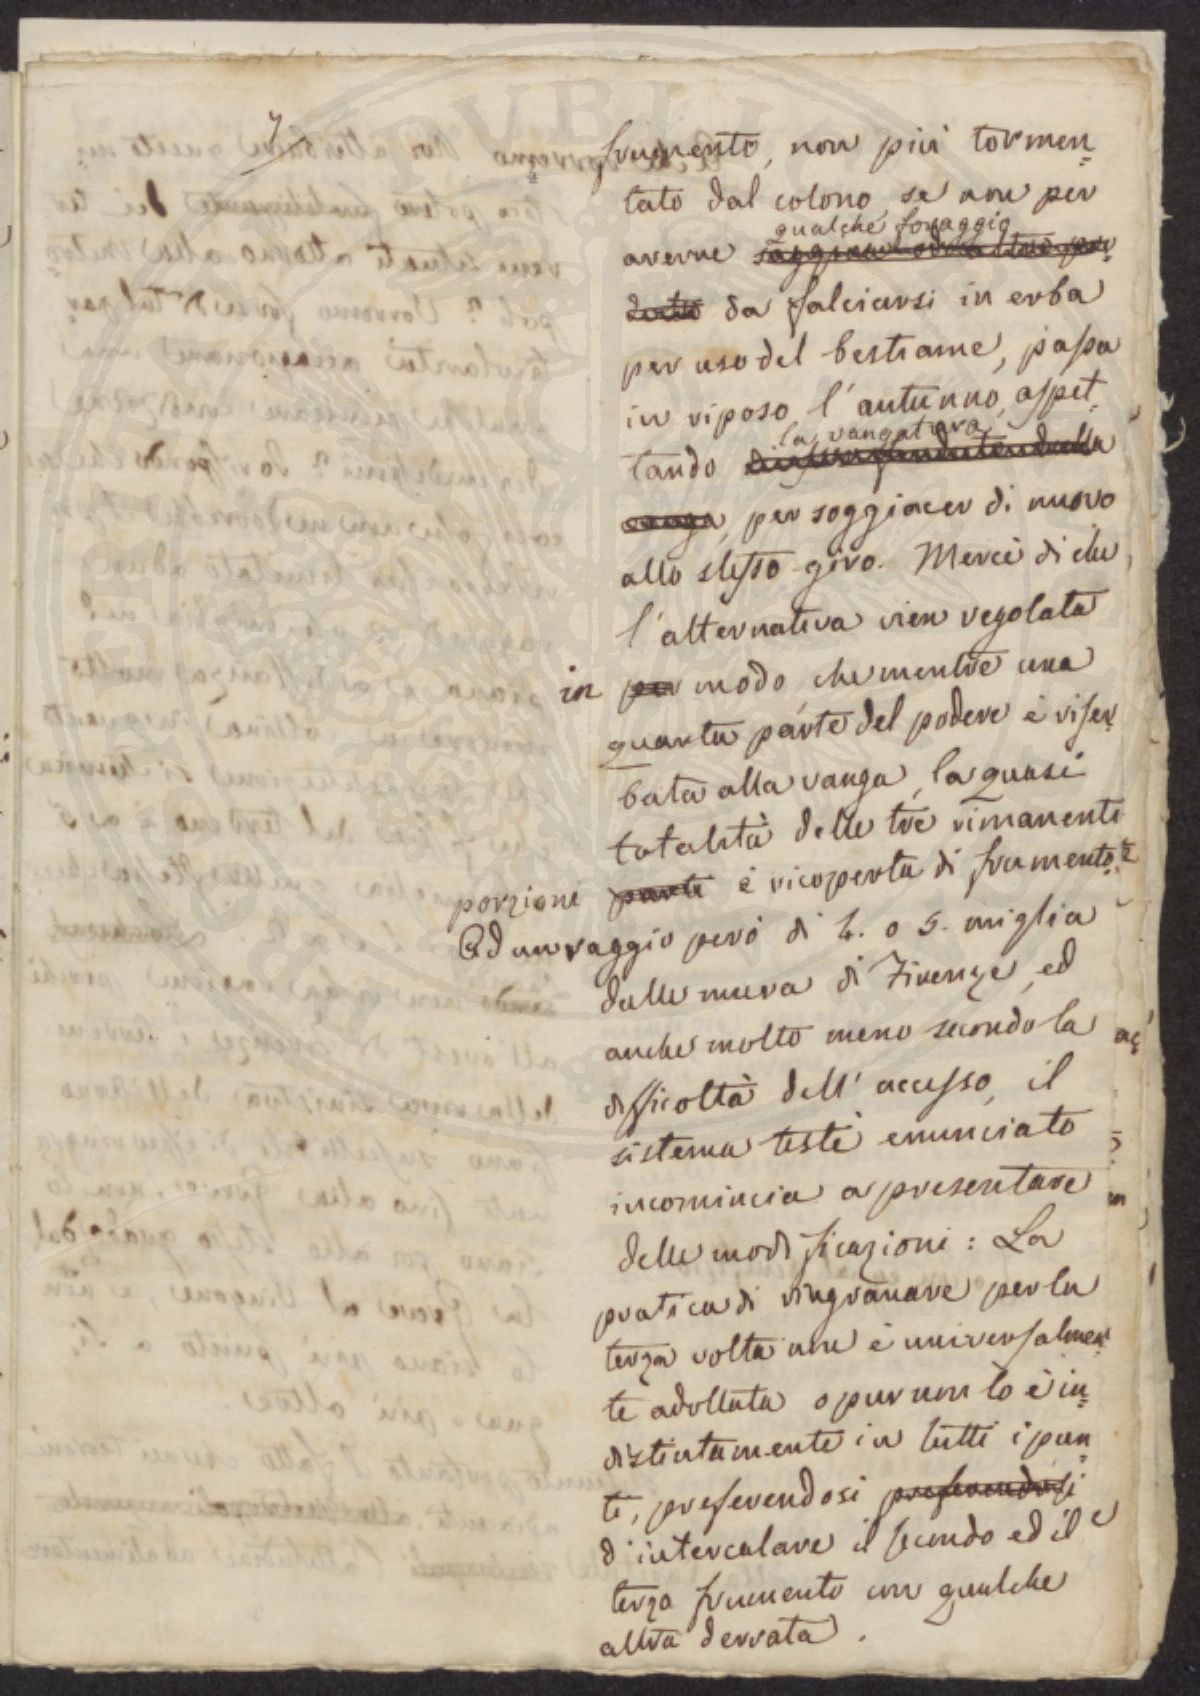 7
frumento, non più tormen-
tato dal colono, se non per
qualche foraggio
averne
da falciarsi in erba
per uso del bestiame, passa
in riposo l'autunno, aspet-
la vangatura
tando
vanga, per soggiacer di nuovo
allo stesso giro. Mercè di che
l'alternativa vien regolata
in per modo che mentre una
quarta parte del podere è riser-
bata alla vanga, la quasi
totalità delle tre rimanenti
porzioni parti è ricoperta di frumento.
Ad un raggio però di 4. o 5. miglia
dalle mura di Firenze, ed
anche molto meno secondo la
difficoltà dell'accesso, il
sistema testè enunciato
incomincia a presentare
delle modificazioni: La
pratica di ringranare per la
terza volta non è universalmen-
te adottata o pur non lo è in-
distintamente in tutti i pun-
ti, preferendosi preferendosi
d'intercalare il secondo ed il
terzo frumento con qualche
altra derrata.